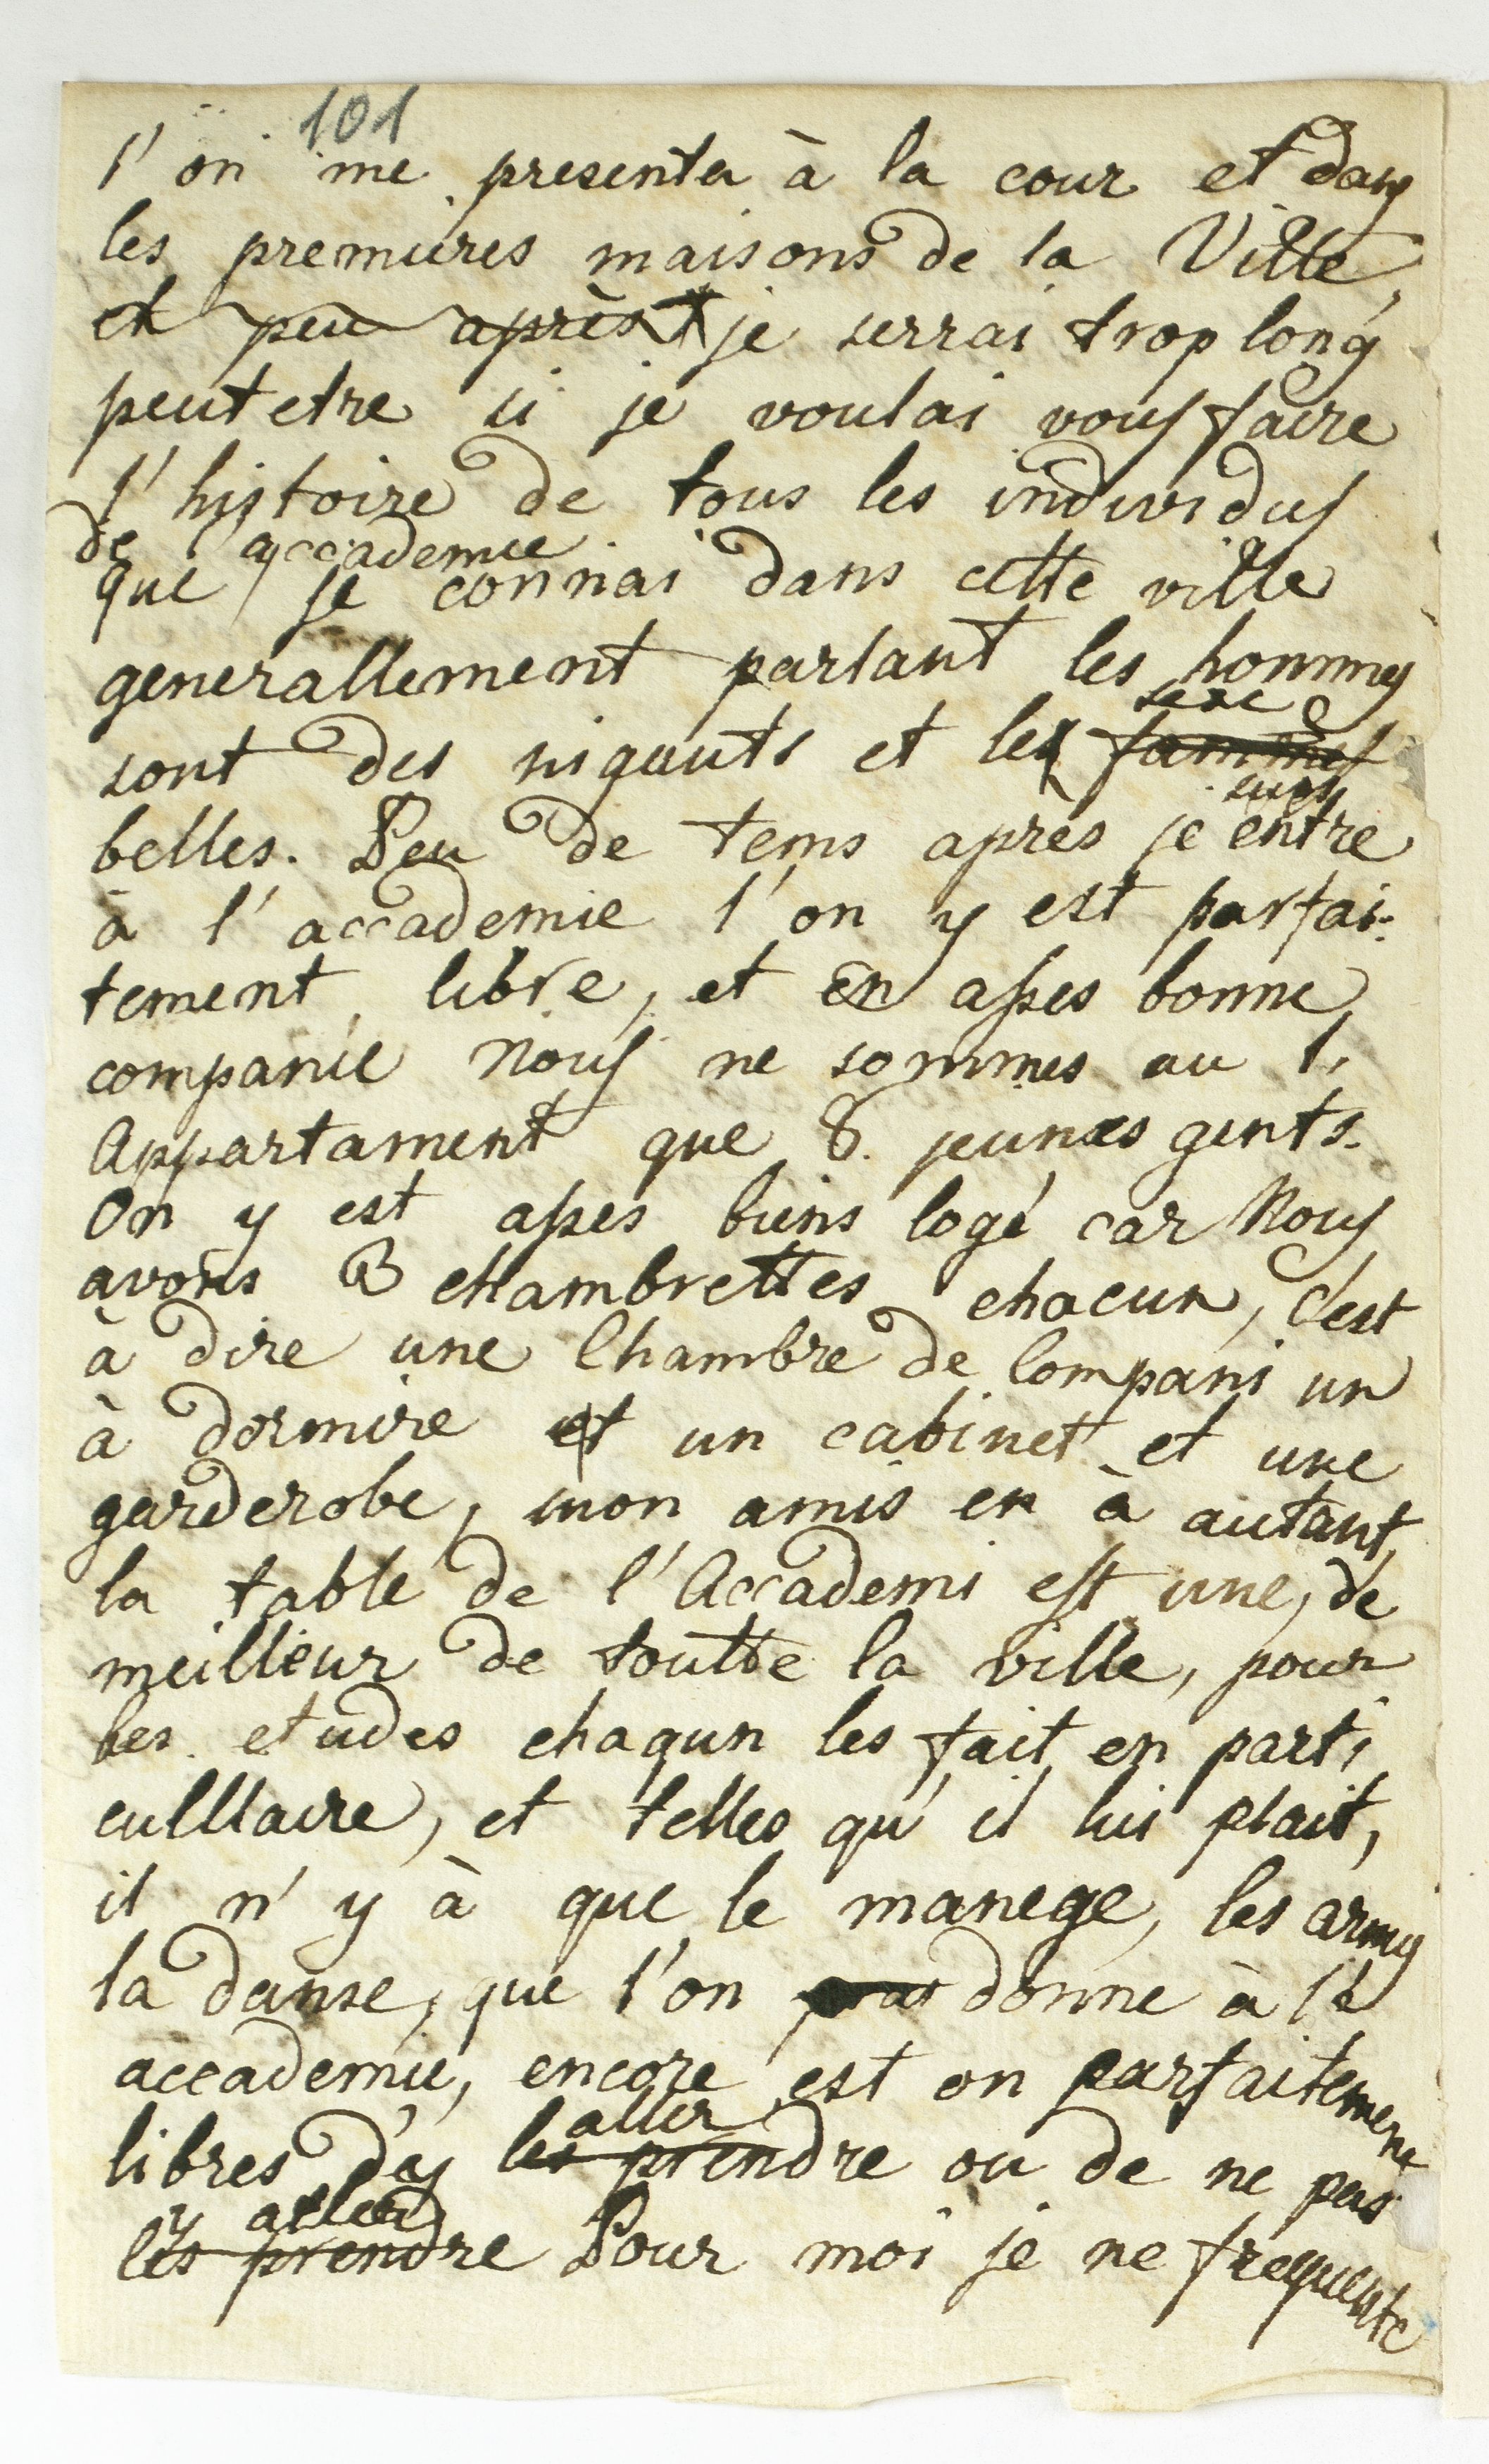 101
l'on me presenta à la cour et dans
les premieres maisons de la Ville,
et peu après je serrai trop long
peut etre si je voulai vous faire
l'histoire de tous les individus
de l'accademie
que je connai dans cette ville
generallement parlant les hommes
sexe
sont des nigauts et les fammes
suis
belles. Peu de tems après je entre
à l'accademie l'on y est parfai-
tement libre, et en asses bonne
companie Nous ne sommes au 1.
Appartament que 8. jeunes gents.
On y est asses biens logé car Nous
avons 3 chambrettes chacun, c'est
à dire une Chambre de Compani un
à dormire et un cabinet et une
garderobe, mon amis en à autant,
la table de l'Accademi est une de
meilleur de toutte la ville, pour
les etudes chaqun les fait en parti
culliaire, et telles qu'il lui plait,
il n'y à que le manege, les armes
la danse, que l'on donne à l'
accademie, encore est on parfaitement
aller
libres d'y les prendre ou de ne pas
y aller
les prendre Pour moi je ne frequente